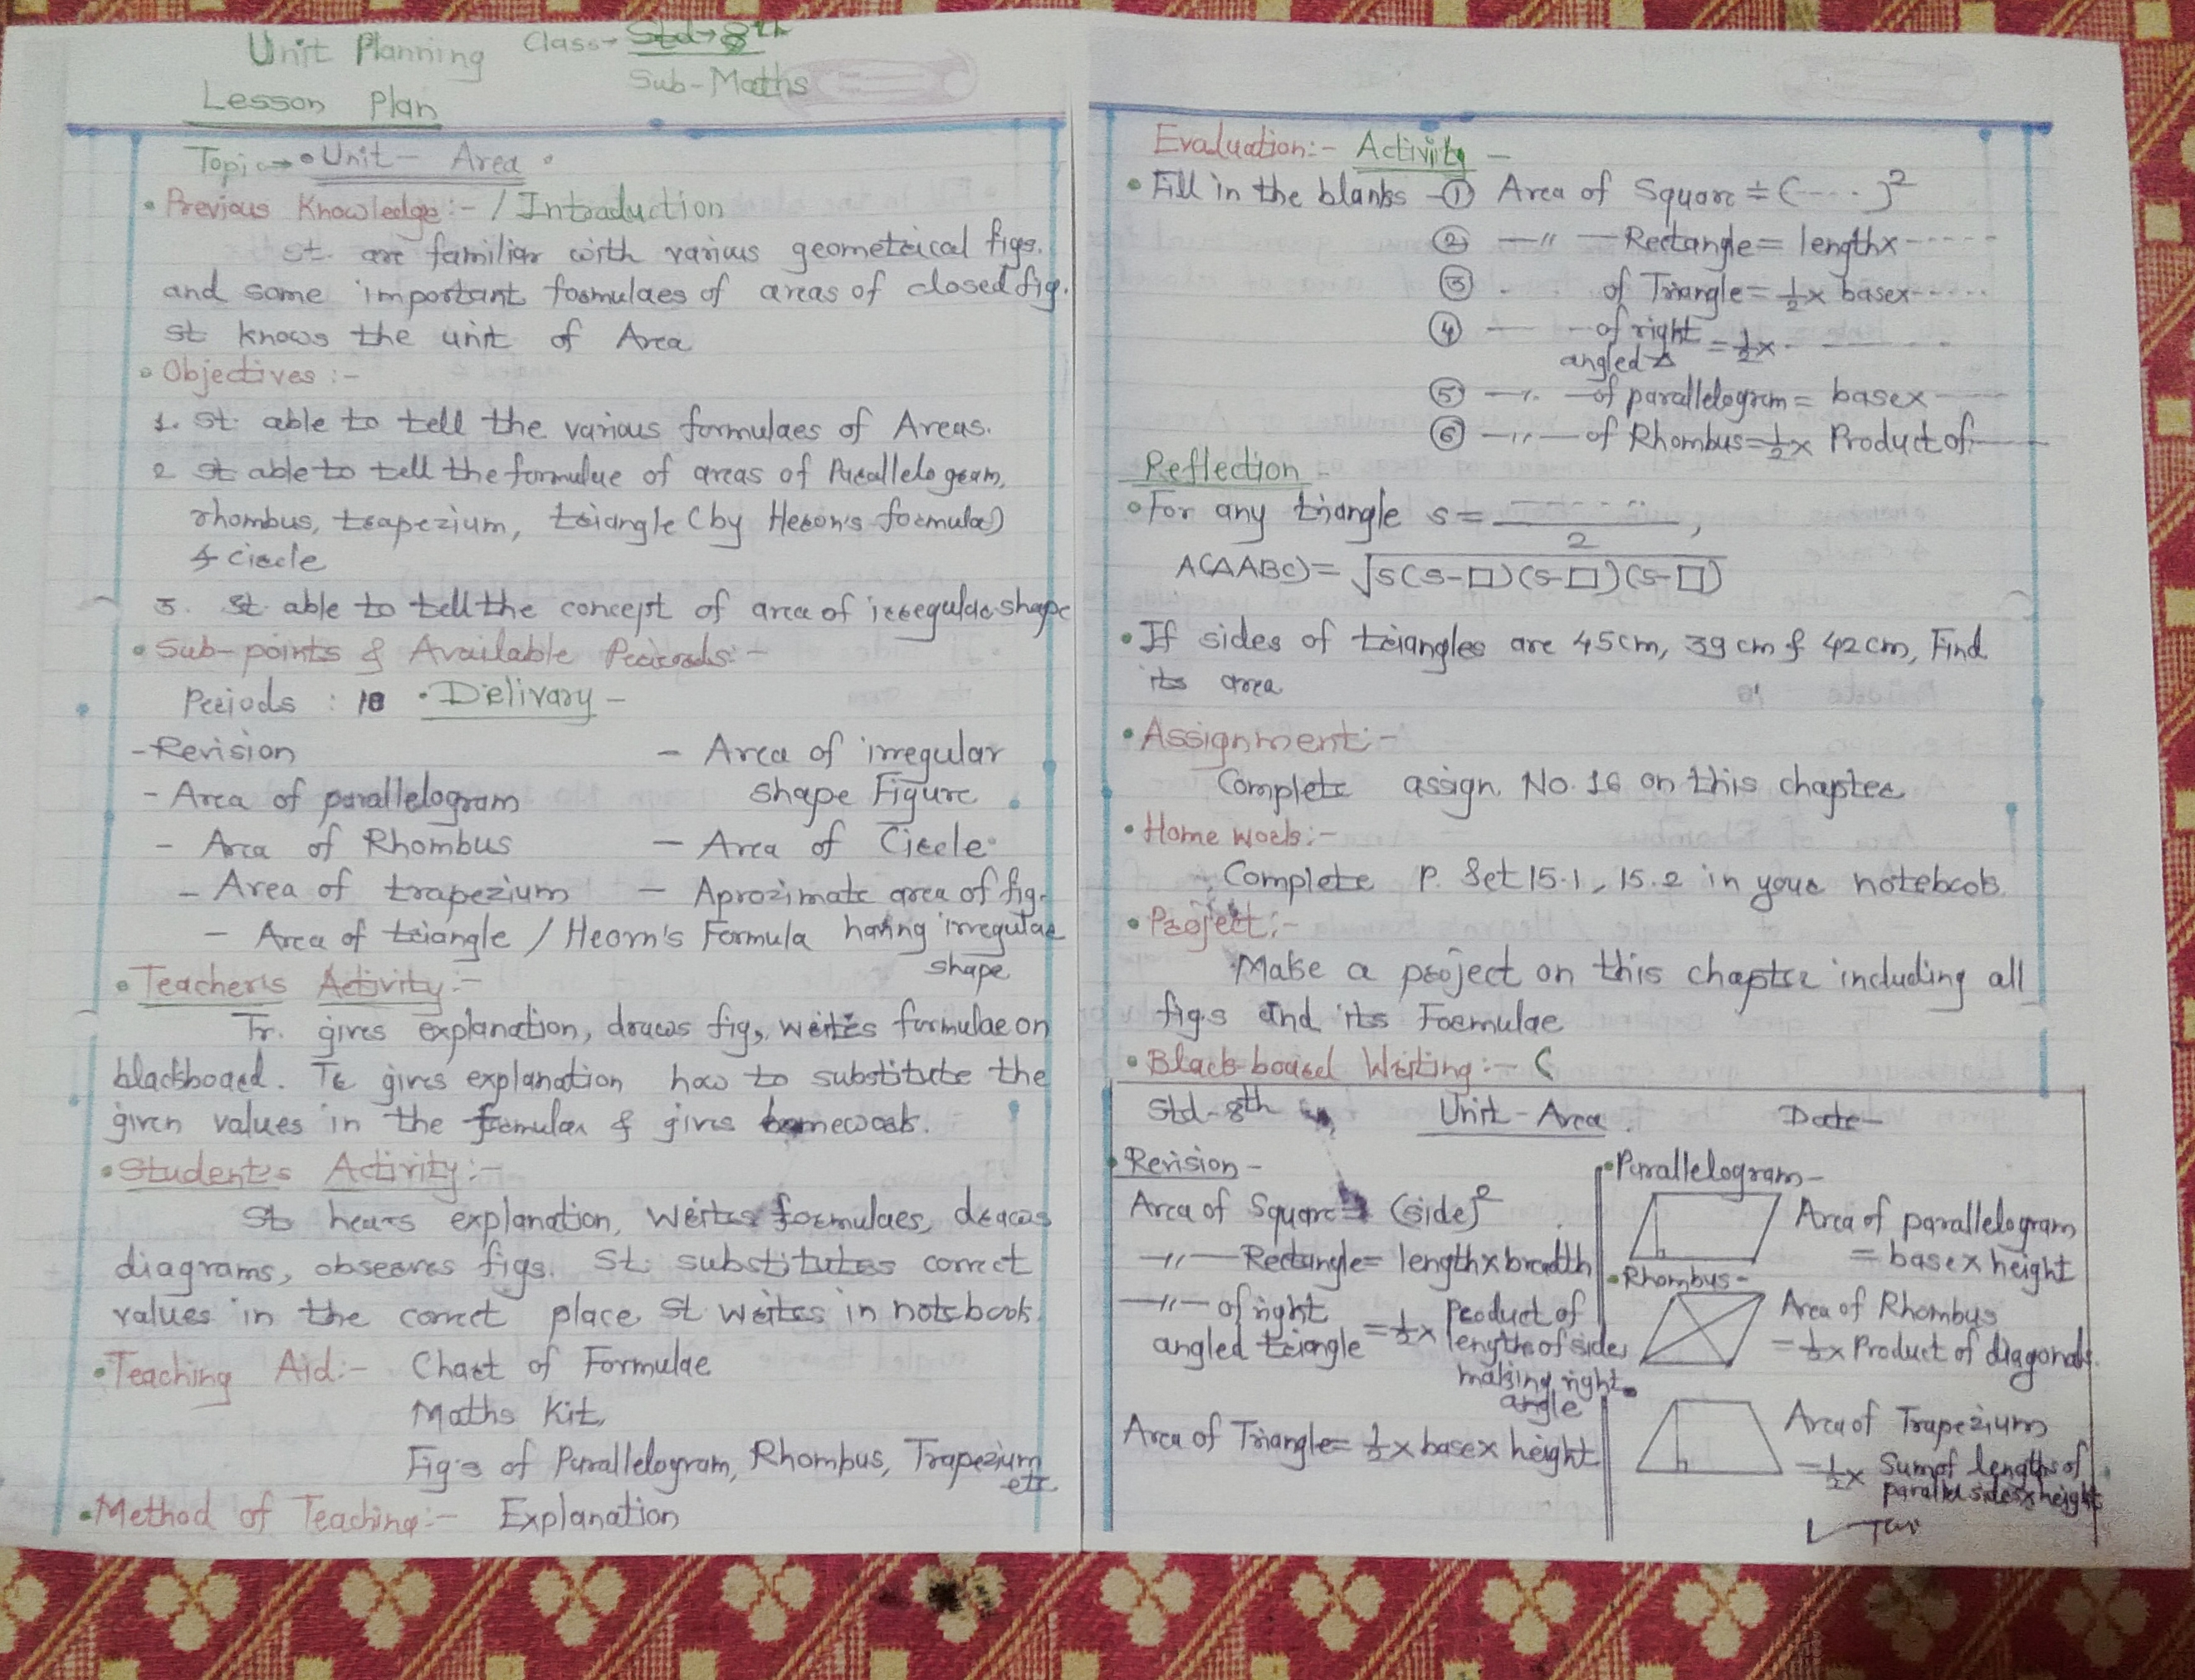 Unit Planning Class→ Std→8th
Sub-Maths
Lesson Plan
Topic→ • Unit- Area •
• Previous Knowledge:- / Introduction
st. are familiar with various geometrical figs.
and some important formulaes of areas of closed fig.
st knows the unit of Area
• Objectives :-
1. st. able to tell the various formulaes of Areas.
2 st able to tell the formulae of areas of Parallelogram,
rhombus, trapezium, triangle (by Heron's formula)
& circle
3. st. able to tell the concept of area of irregular shape
• Sub-points & Available Periods:-
Periods : 10 • Delivary -
- Revision
- Area of parallelogram
- Area of Rhombus
- Area of trapezium
- Area of triangle / Heorn's Formula
- Area of irregular
shape Figure.
- Area of Circle
- Aprozimate area of fig.
having irregular
shape
• Teacher's Activity:-
Tr. gives explanation, draws fig, writes formulae on
blackboard. Tr gives explanation how to substitute the
given values in the formulae & gives homework.
• Student's Activity:-
St hears explanation, writes formulaes, draws
diagrams, observes figs. St. substitutes correct
values in the correct place. St writes in notebook.
• Teaching Aid:- Chart of Formulae
Maths Kit,
Fig's of Parallelogram, Rhombus, Trapezium
etc
• Method of Teaching:- Explanation
Evaluation:- Activity -
• Fill in the blanks - ① Area of Square = (----)²
② —〃— Rectangle = length× -----
③ - of Triangle = 1/2 × base× -----
④ — - of right
angled △ = 1/2 × - ——— -
⑤ —〃— of parallelogram = base× -----
⑥ —〃— of Rhombus = 1/2 × Product of ——
Reflection -
• For any triangle s = ------ / 2 ,
A(△ABC) = √s(s-□)(s-□)(s-□)
• If sides of triangles are 45cm, 39 cm & 42 cm, Find
its area
• Assignment:-
Complete assign. No. 16 on this chapter
• Home work:-
Complete P. Set 15.1, 15.2 in your notebook
• Project:-
Make a project on this chapter including all
figs and its Formulae
• Black-board Writing:-
Std-8th Unit-Area. Date-
• Revision -
Area of Square = (side)²
—〃— Rectangle = length×breadth
—〃— of right
angled triangle = 1/2 × Product of
length of sides
making right
angle
Area of Triangle = 1/2 × base × height
• Parallelogram -
Area of parallelogram
= base × height
• Rhombus -
Area of Rhombus
= 1/2 × Product of diagonals.
Area of Trapezium
= 1/2 × Sum of lengths of
parallel sides×height